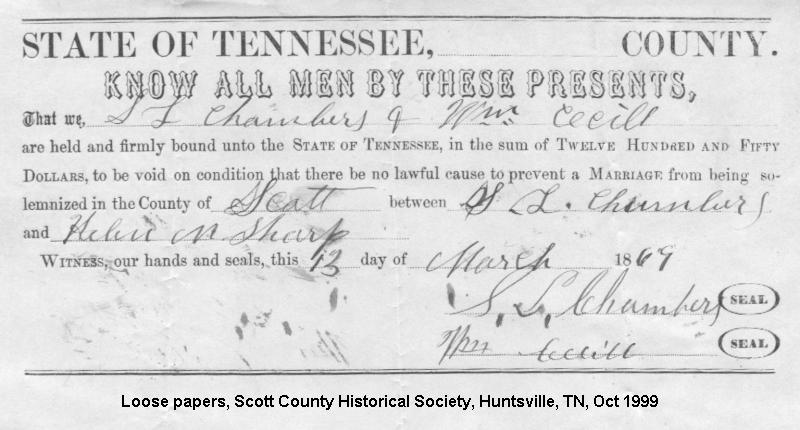 STATE OF TENNESSEE, COUNTY.
KNOW ALL MEN BY THESE PRESENTS,
That we, S L Chambers & Wm Cecill
are held and firmly bound unto the STATE OF TENNESSEE, in the sum of TWELVE HUNDRED AND FIFTY
DOLLARS, to be void on condition that there be no lawful cause to prevent a MARRIAGE from being so-
lemnized in the County of Scott between S L. Chambers
and Helen M Sharp
WITNESS, our hands and seals, this 13 day of March 1869
S. L. Chambers SEAL
Wm Cecill SEAL
Loose papers, Scott County Historical Society, Huntsville, TN, Oct 1999